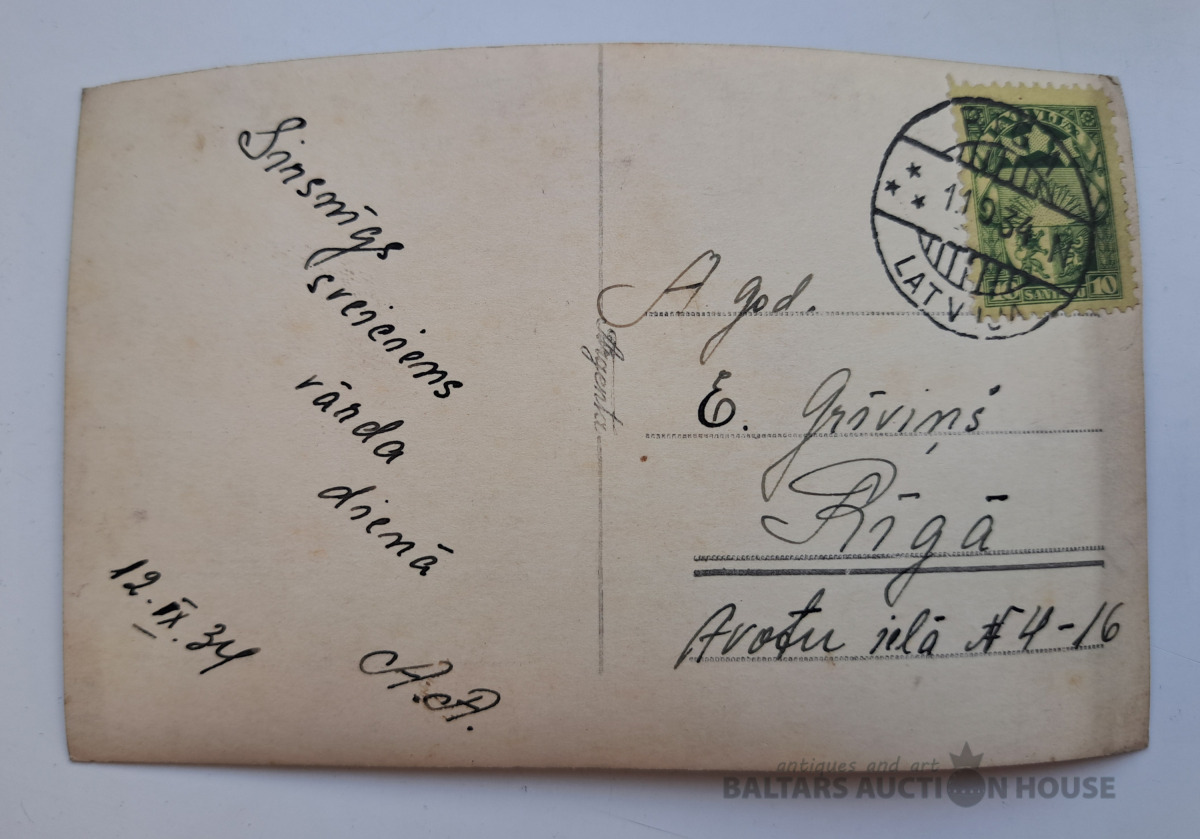 Sirsnīgs
sveiciens
vārda
dienā
12.IX.34
A.A.
A god.
E. Grīviņš
Rīgā
Avotu ielā № 4-16
LATVIJA
10 SANTIMU 10
11.9.34
LATVIJA
antiques and art
BALTARS AUCTION HOUSE